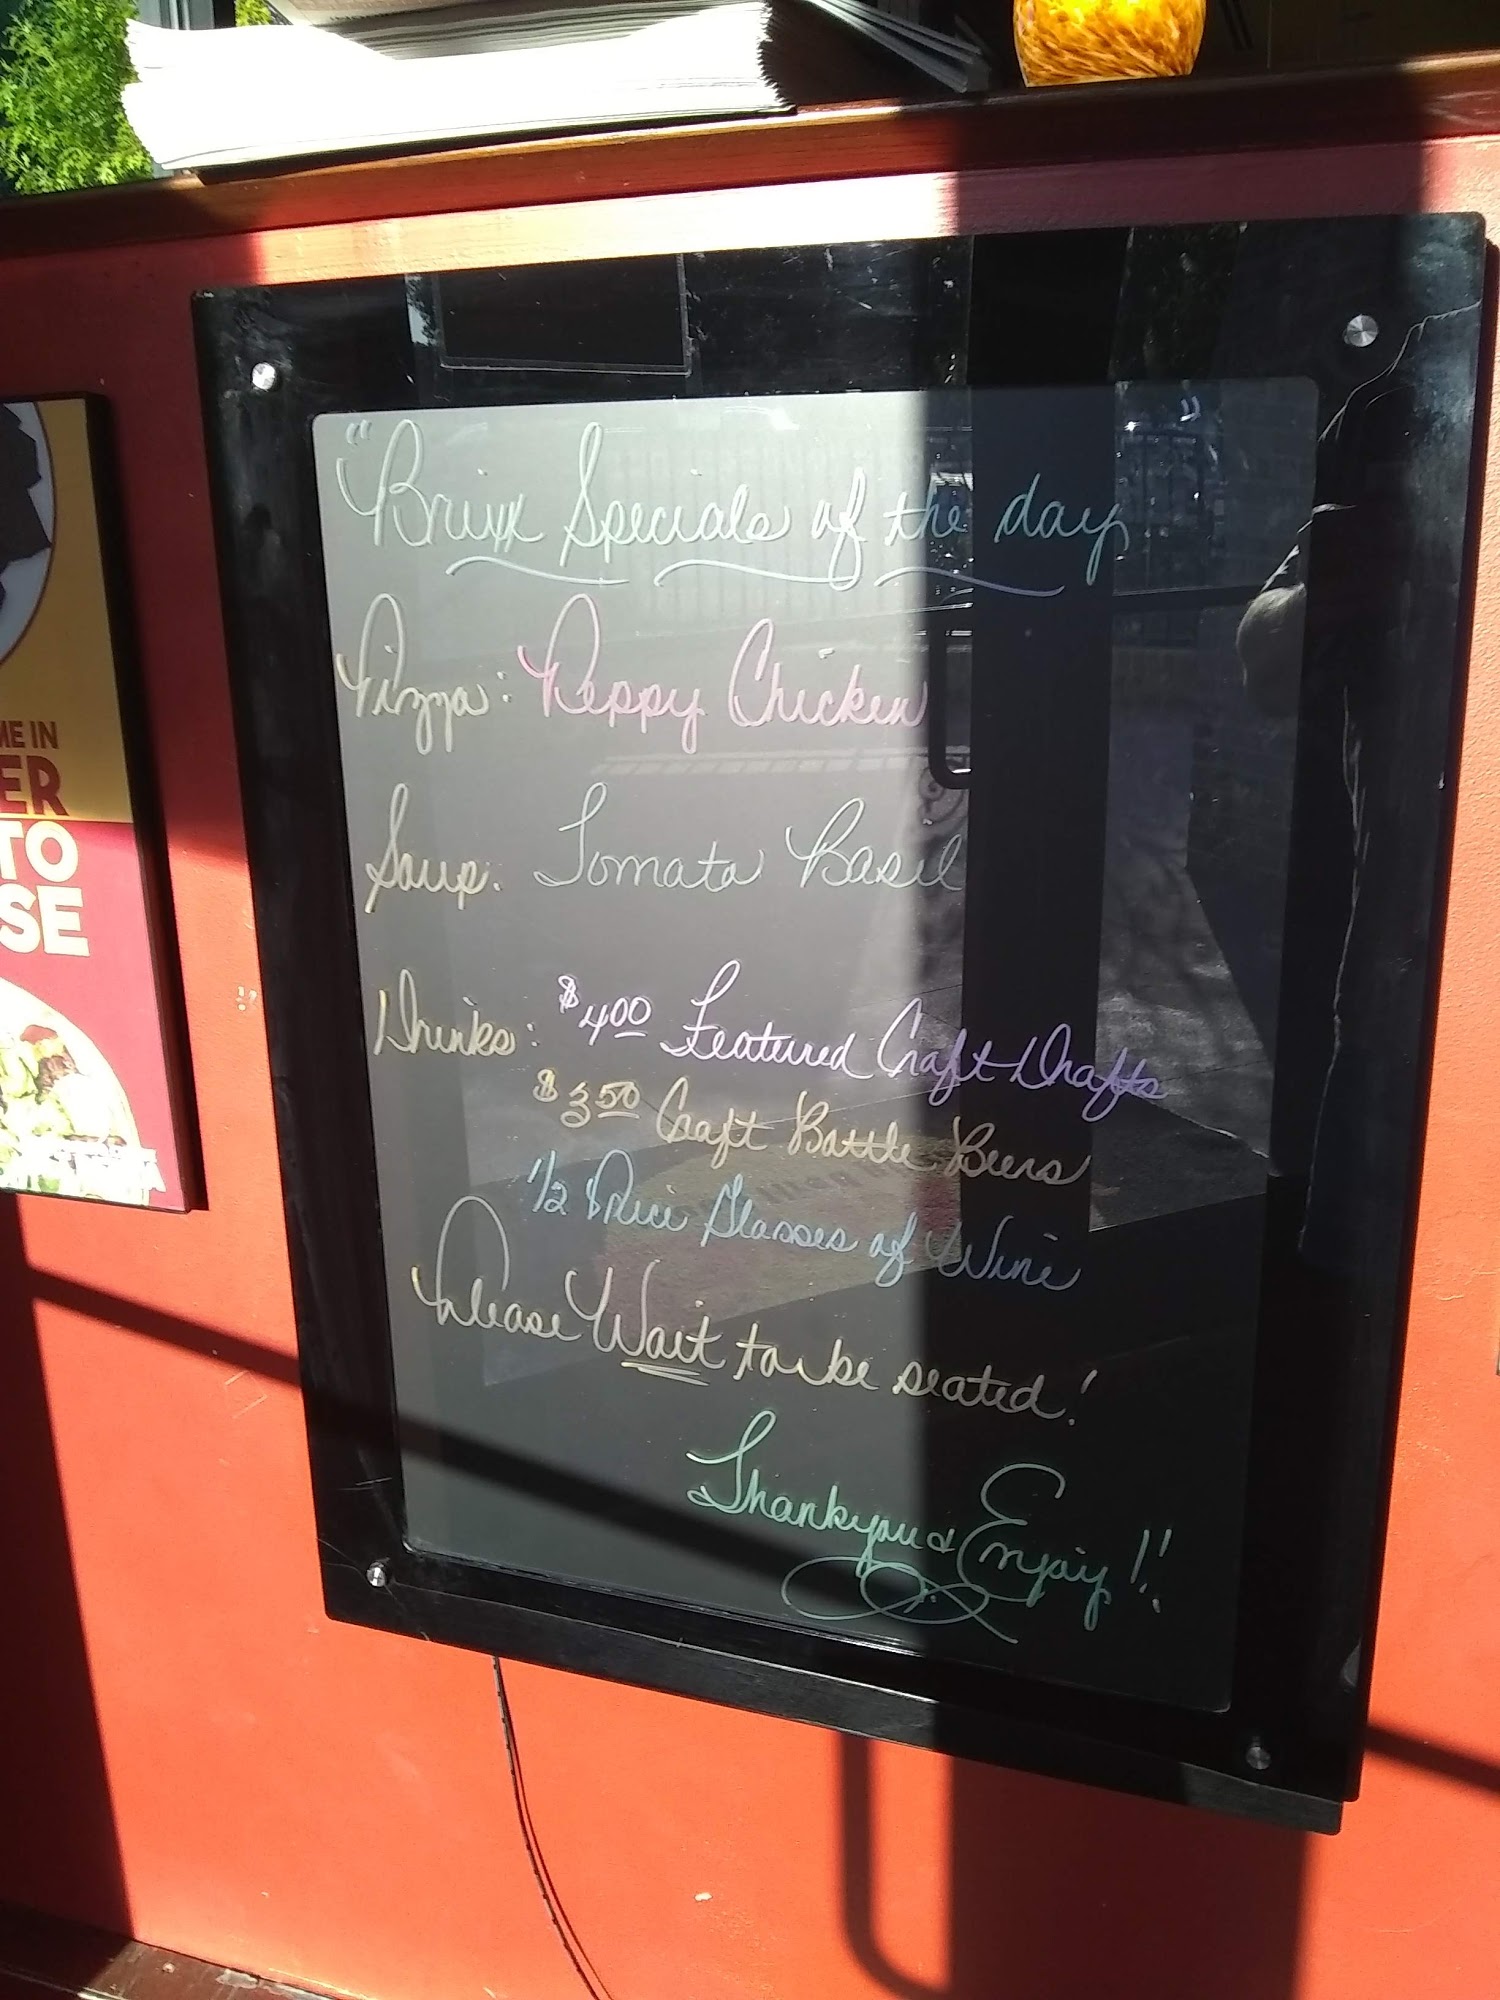 "Brixx Specials of the day"
Pizza: Peppy Chicken
Soup: Tomato Basil
Drinks: $4.00 Featured Craft Drafts
$3.50 Craft Bottle Beers
1/2 Price Glasses of Wine
Please Wait to be seated!
Thankyou & Enjoy!!
ME IN
ER
TO
SE